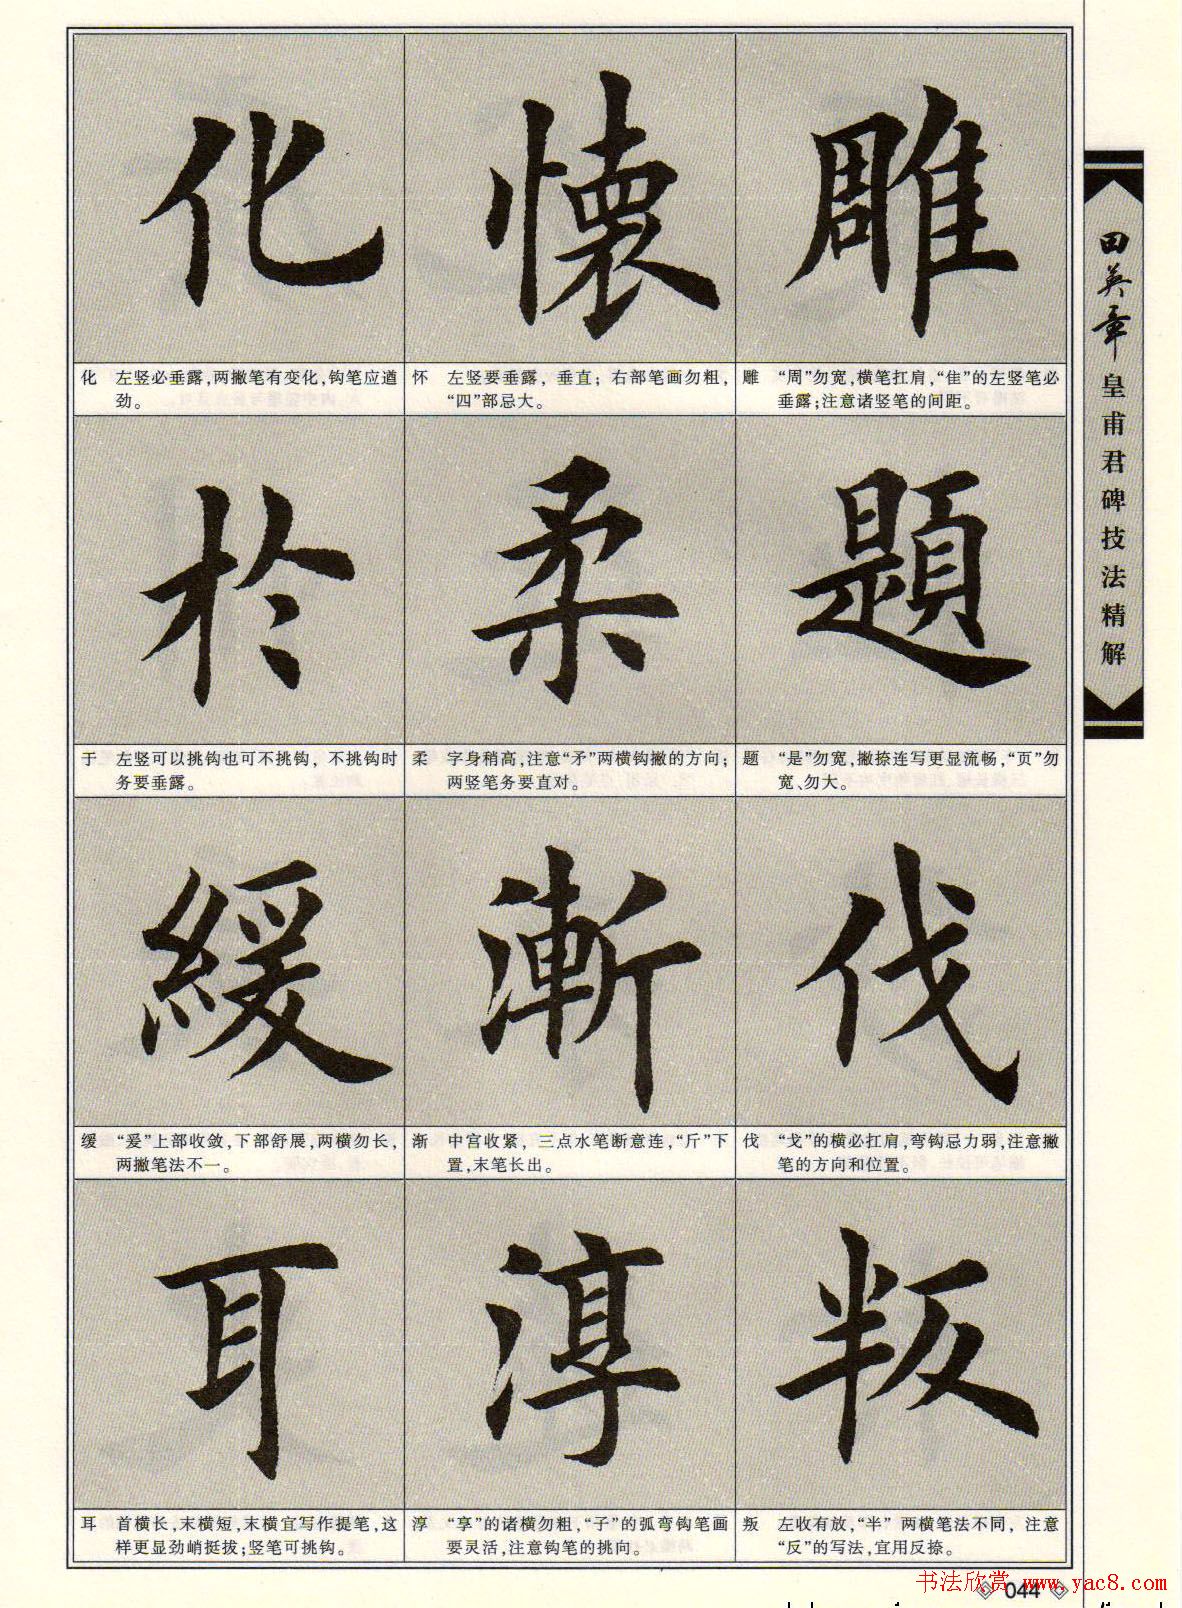 化 懷 雕
化 左竖必垂露,两撇笔有变化,钩笔应遒
劲。
怀 左竖要垂露,垂直;右部笔画勿粗,
“四”部忌大。
雕 “周”勿宽,横笔扛肩,“隹”的左竖笔必
垂露;注意诸竖笔的间距。
於 柔 題
于 左竖可以挑钩也可不挑钩,不挑钩时
务要垂露。
柔 字身稍高,注意“矛”两横钩撇的方向;
两竖笔务要直对。
题 “是”勿宽,撇捺连写更显流畅,“页”勿
宽、勿大。
緩 漸 伐
缓 “爰”上部收敛,下部舒展,两横勿长,
两撇笔法不一。
渐 中宫收紧,三点水笔断意连,“斤”下
置,末笔长出。
伐 “戈”的横必扛肩,弯钩忌力弱,注意撇
笔的方向和位置。
耳 淳 叛
耳 首横长,末横短,末横宜写作提笔,这
样更显劲峭挺拔;竖笔可挑钩。
淳 “享”的诸横勿粗,“子”的弧弯钩笔画
要灵活,注意钩笔的挑向。
叛 左收右放,“半”两横笔法不同,注意
“反”的写法,宜用反捺。
田英章皇甫君碑技法精解
044
书法欣赏 www.yac8.com